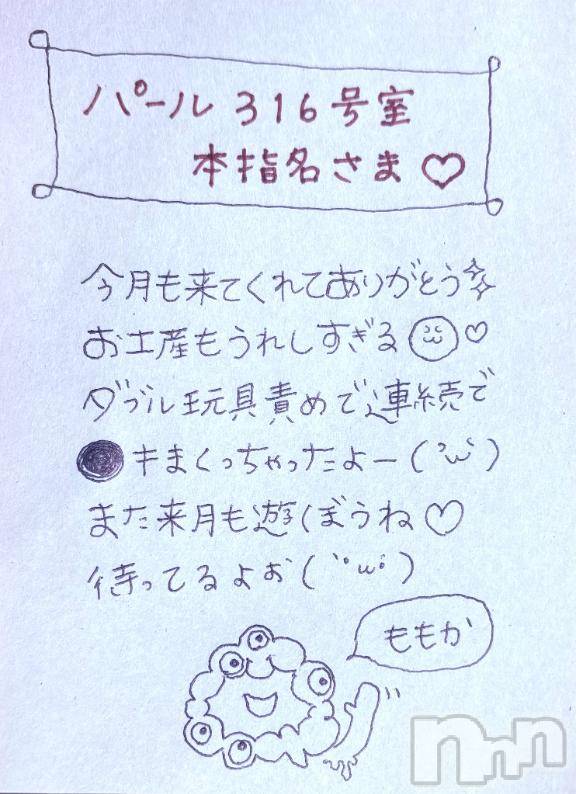 パール316号室
本指名さま♡
今月も来てくれてありがとう
お土産もうれしすぎる♡
ダブル玩具責めで連続で
●キまくっちゃったよー(˙ω˙)
また来月も遊ぼうね♡
待ってるよぉ(˙ω˙)
ももか
nnn